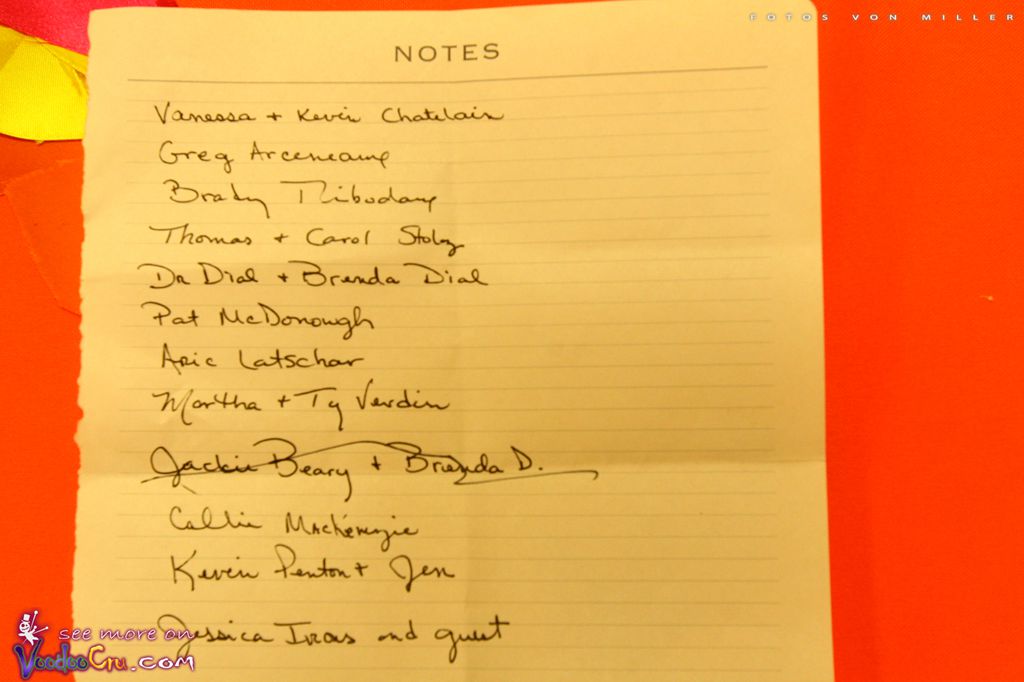 FOTOS VON MILLER
NOTES
Vanessa + Kevin Chatelain
Greg Arceneaux
Brady Thibodaux
Thomas + Carol Stolz
Dr Dial + Brenda Dial
Pat McDonough
Aric Latschar
Martha + Ty Verdin
Jackie Beary + Brenda D.
Callie Mackenzie
Kevin Penton + Jen
Jessica and guest
see more on
VoodooCru.com